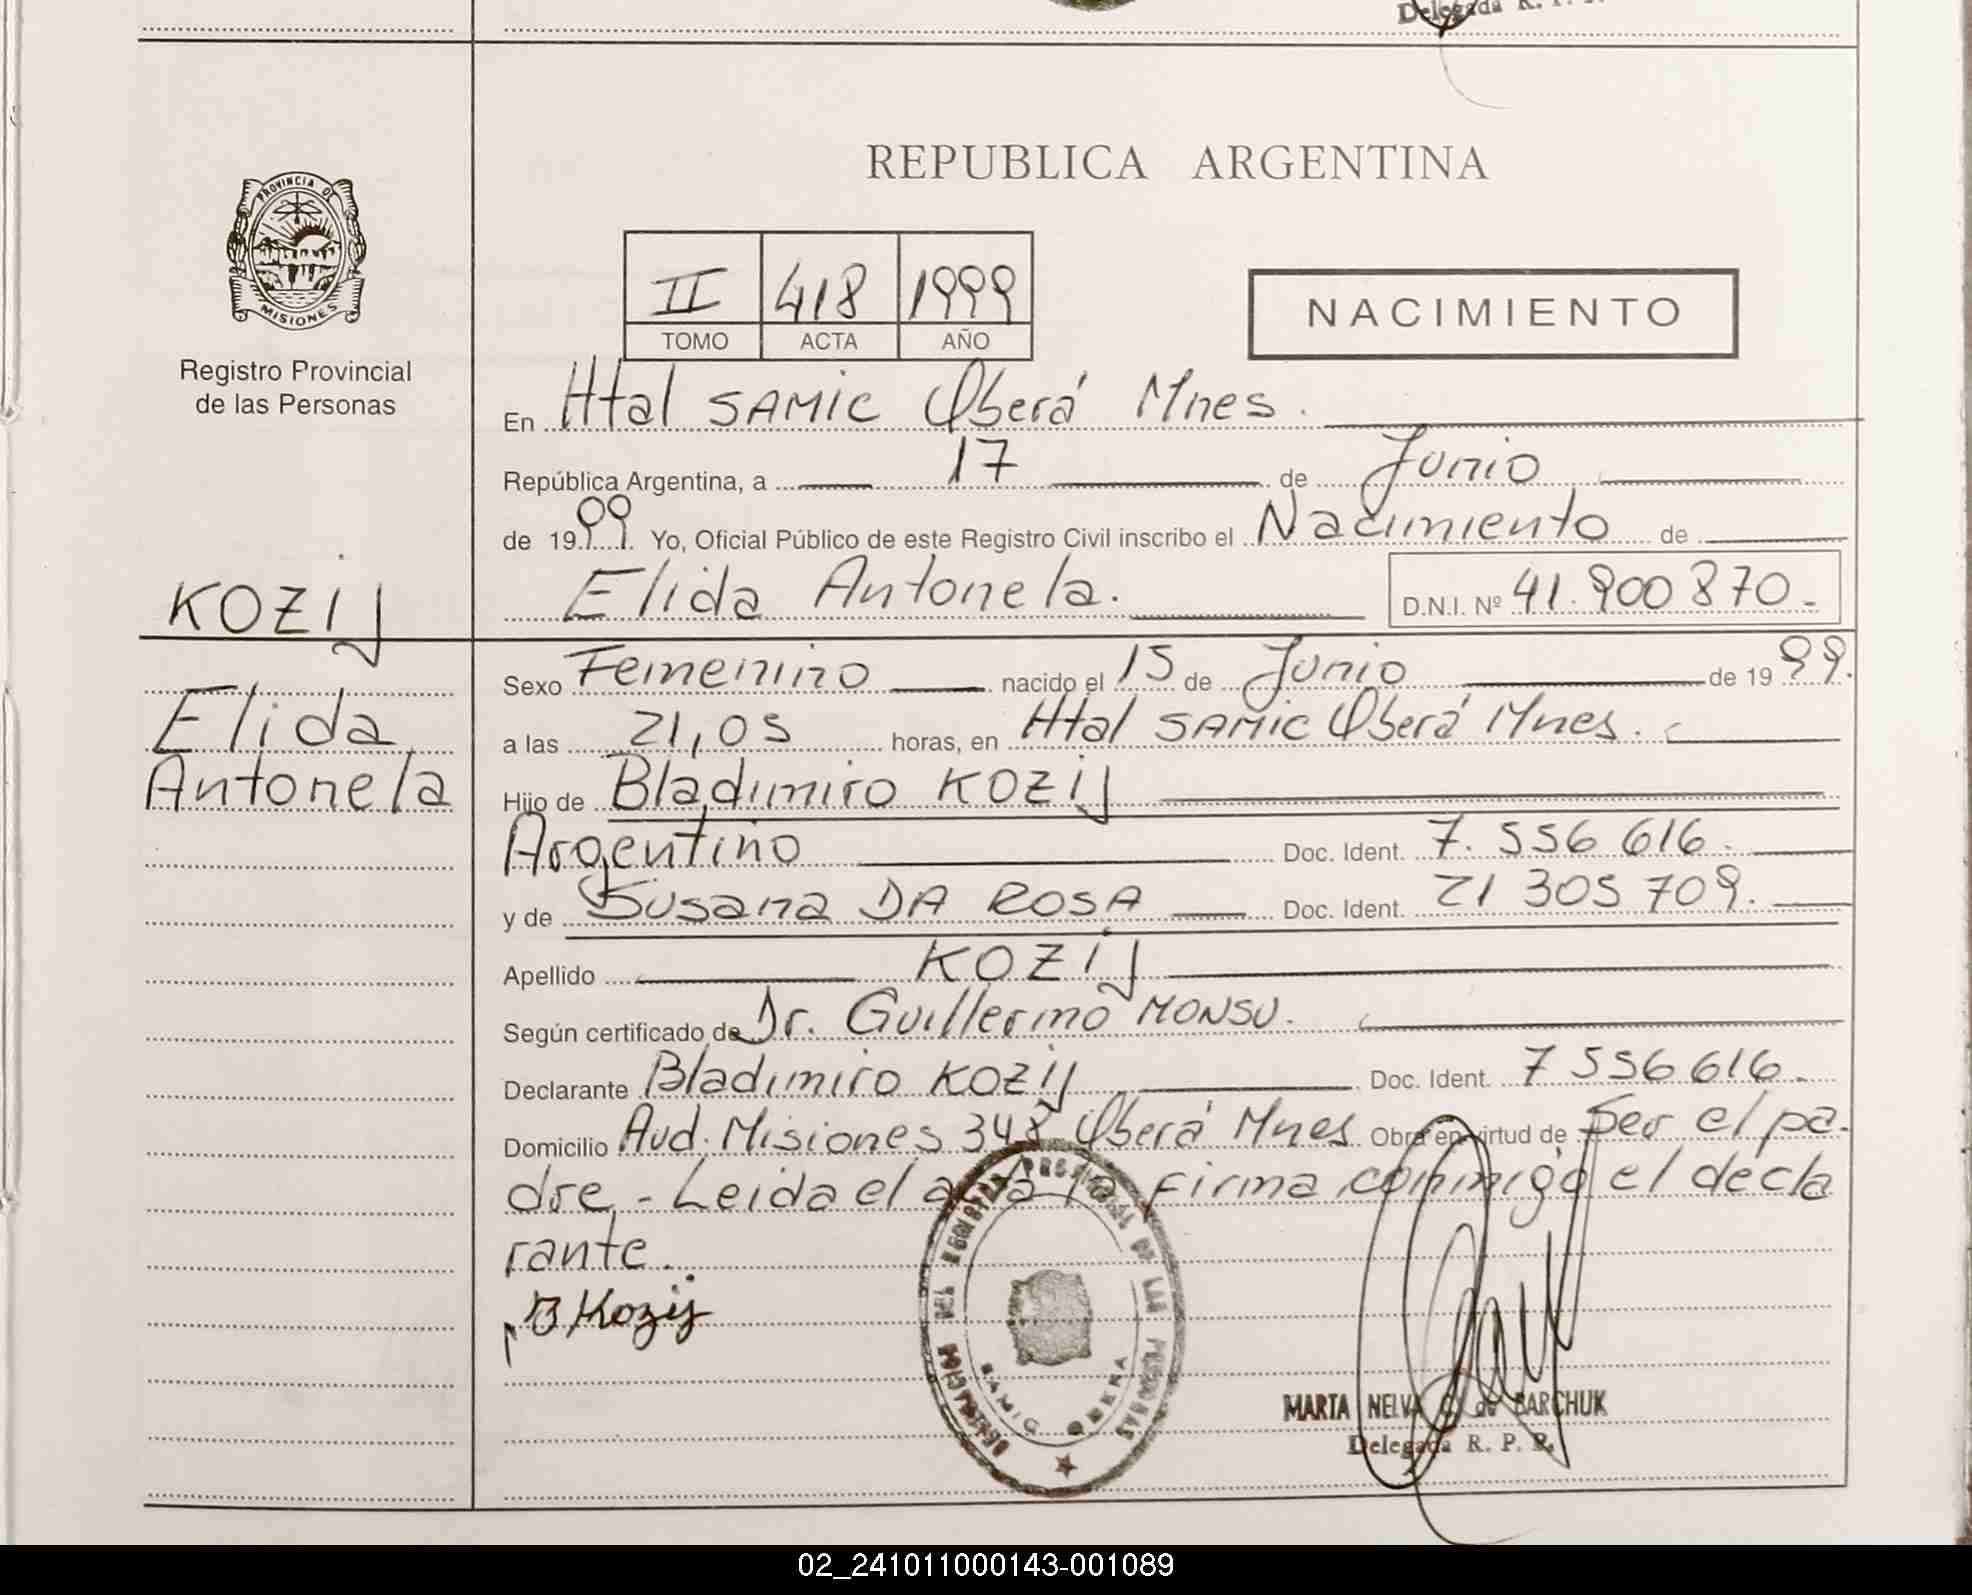 Delegada R. P. P.
REPUBLICA ARGENTINA
PROVINCIA DE
MISIONES
II 418 1999
TOMO ACTA AÑO
NACIMIENTO
Registro Provincial
de las Personas
En Htal SAMIC Oberá Mnes.
República Argentina, a 17 de Junio
de 1999. Yo, Oficial Público de este Registro Civil inscribo el Nacimiento de
Elida Antonela. D.N.I. Nº 41.900 870.-
KOZIJ
Elida
Antonela
Sexo Femenino nacido el 15 de Junio de 1999.
a las 21,05 horas, en Htal SAMIC Oberá Mnes.
Hijo de Bladimiro KOZIJ
Argentino Doc. Ident. 7.556 616.
y de Susana DA ROSA Doc. Ident. 21 305 709.
Apellido KOZIJ
Según certificado de Dr. Guillermo MONSU.
Declarante Bladimiro KOZIJ Doc. Ident. 7 556 616.
Domicilio Avd. Misiones 348 Oberá Mnes Obra en virtud de Ser el pa-
dre - Leida el acta la firma conmigo el decla
rante.
B Kozij
DELEGACION DEL REGISTRO PROVINCIAL DE LAS PERSONAS
SAMIC OBERA
MARTA NELVA C. de BARCHUK
Delegada R. P. P.
02_241011000143-001089